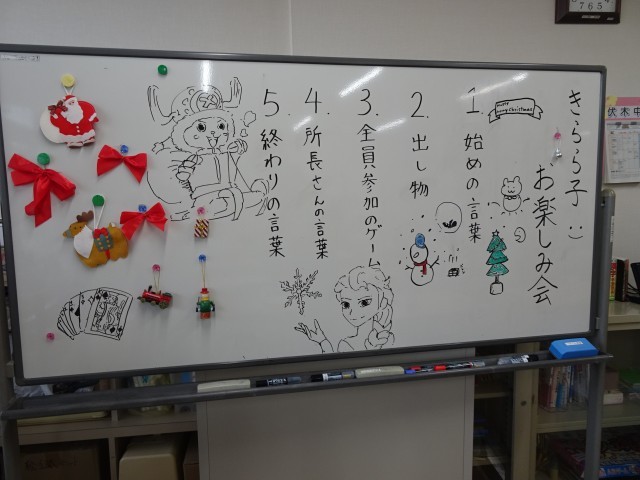 きらら子:)
お楽しみ会
1. 始めの言葉
2. 出し物
3. 全員参加のゲーム
4. 所長さんの言葉
5. 終わりの言葉
Merry Christmas
伏木中
765